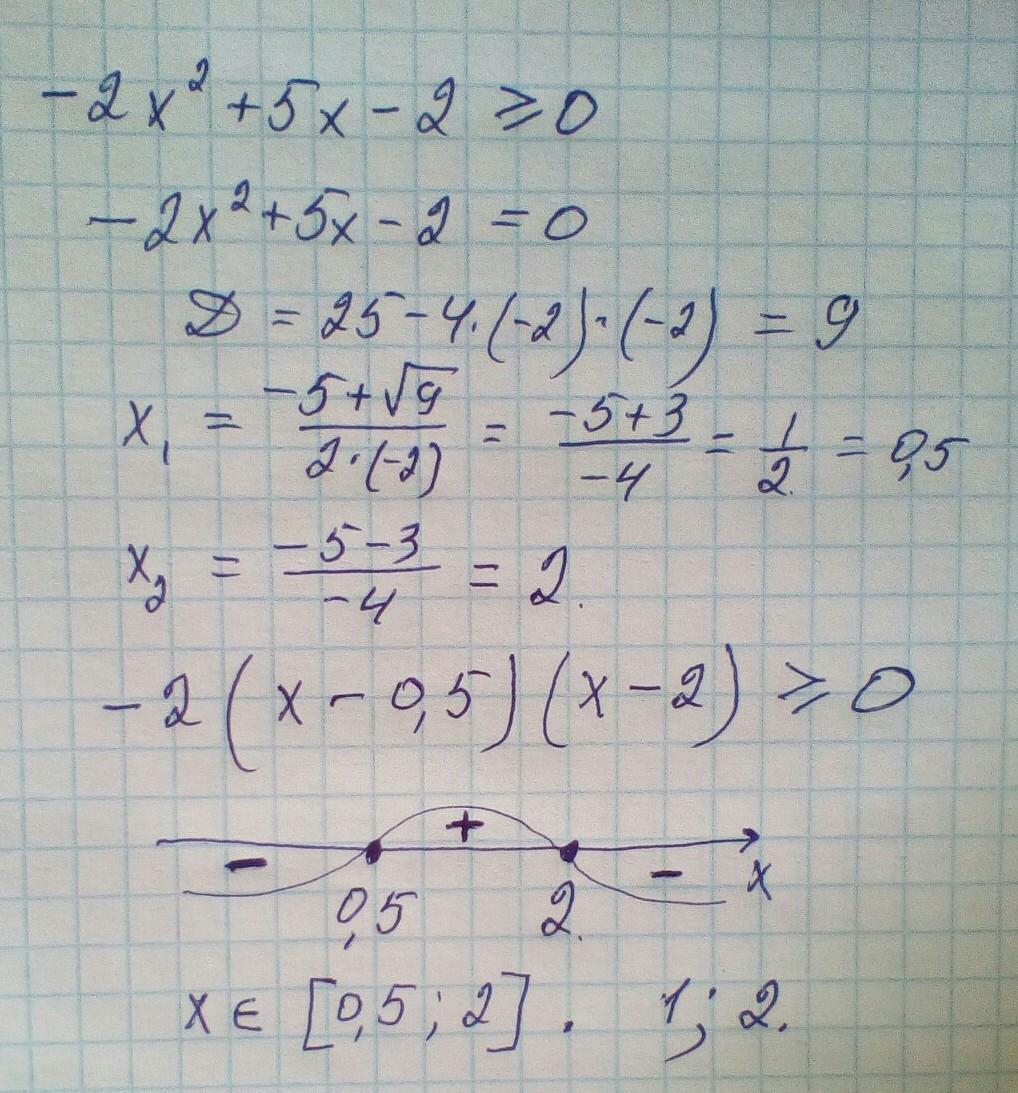 -2x² + 5x - 2 ≥ 0
-2x² + 5x - 2 = 0
D = 25 - 4·(-2)·(-2) = 9
x₁ = (-5+√9)/(2·(-2)) = (-5+3)/(-4) = 1/2 = 0,5
x₂ = (-5-3)/(-4) = 2.
-2(x - 0,5)(x - 2) ≥ 0
- + - x
0,5 2.
x ∈ [0,5; 2]. 1; 2.